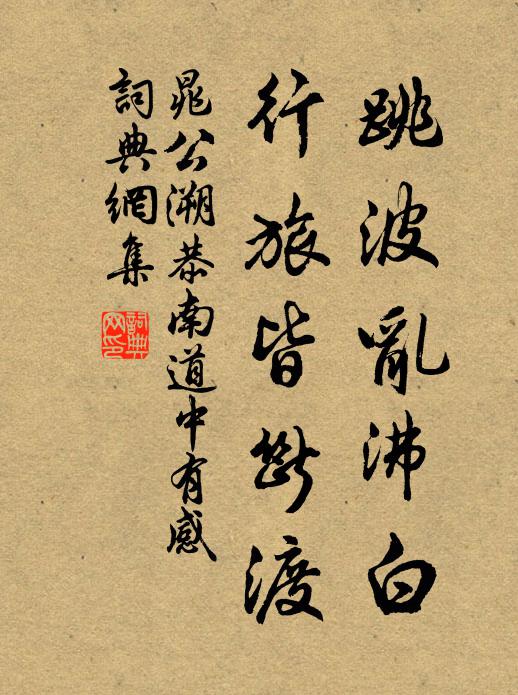 跳波亂沸白
行旅皆斷渡
晁公溯恭南道中有感
詞典網集
詞典網印